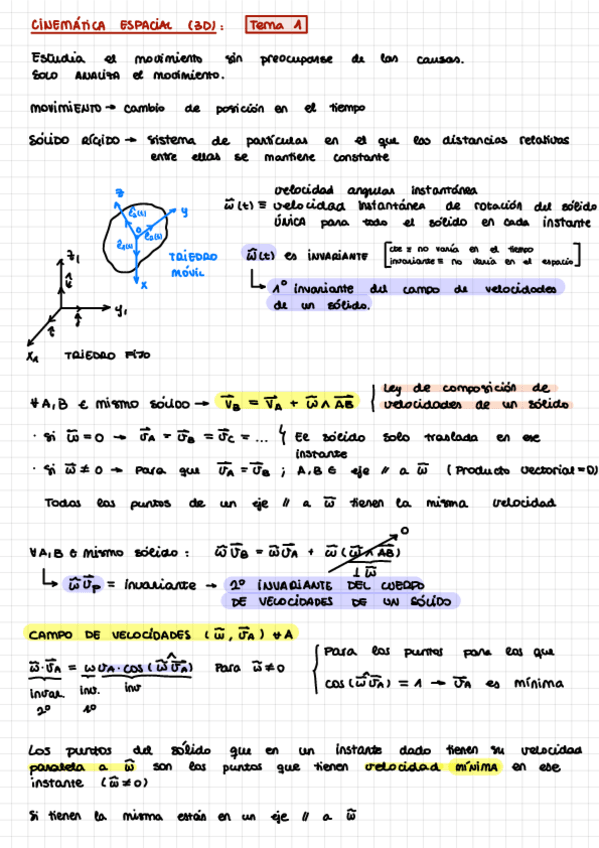 CINEMÁTICA ESPACIAL (3D): Tema 1
Estudia el movimiento sin preocuparse de las causas.
SOLO ANALIZA el movimiento.
MOVIMIENTO → cambio de posición en el tiempo
SÓLIDO RÍGIDO → sistema de partículas en el que las distancias relativas
entre ellas se mantiene constante
z
y
x
0
TRIEDRO
MÓVIL
z₁
y₁
x₁
TRIEDRO FIJO
velocidad angular instantánea
ω⃗(t) ≡ velocidad instantánea de rotación del sólido
ÚNICA para todo el sólido en cada instante
ω⃗(t) es INVARIANTE [cte ≡ no varía en el tiempo
invariante ≡ no varía en el espacio]
1º invariante del campo de velocidades
de un sólido.
∀A,B ∈ mismo sólido → v⃗B = v⃗A + ω⃗ ∧ AB⃗ { Ley de composición de
velocidades de un sólido
· Si ω⃗ = 0 → v⃗A = v⃗B = v⃗C = ... { El sólido solo traslada en ese
instante
· Si ω⃗ ≠ 0 → Para que v⃗A = v⃗B ; A,B ∈ eje // a ω⃗ (Producto vectorial = 0)
Todos los puntos de un eje // a ω⃗ tienen la misma velocidad
∀A,B ∈ mismo sólido: ω⃗ v⃗B = ω⃗ v⃗A + ω⃗ (ω⃗ ∧ AB⃗) 0
⊥ ω⃗
ω⃗ v⃗p = invariante → 2º INVARIANTE DEL CUERPO
DE VELOCIDADES DE UN SÓLIDO
CAMPO DE VELOCIDADES (ω⃗, v⃗A) ∀A
ω⃗ · v⃗A = ω vA · cos(ω⃗ v⃗A) para ω⃗ ≠ 0
invar inv. inv
2º 1º
{ Para los puntos para los que
cos(ω⃗ v⃗A) = 1 → v⃗A es mínima
Los puntos del sólido que en un instante dado tienen su velocidad
paralela a ω⃗ son los puntos que tienen velocidad mínima en ese
instante (ω⃗ ≠ 0)
Si tienen la misma están en un eje // a ω⃗